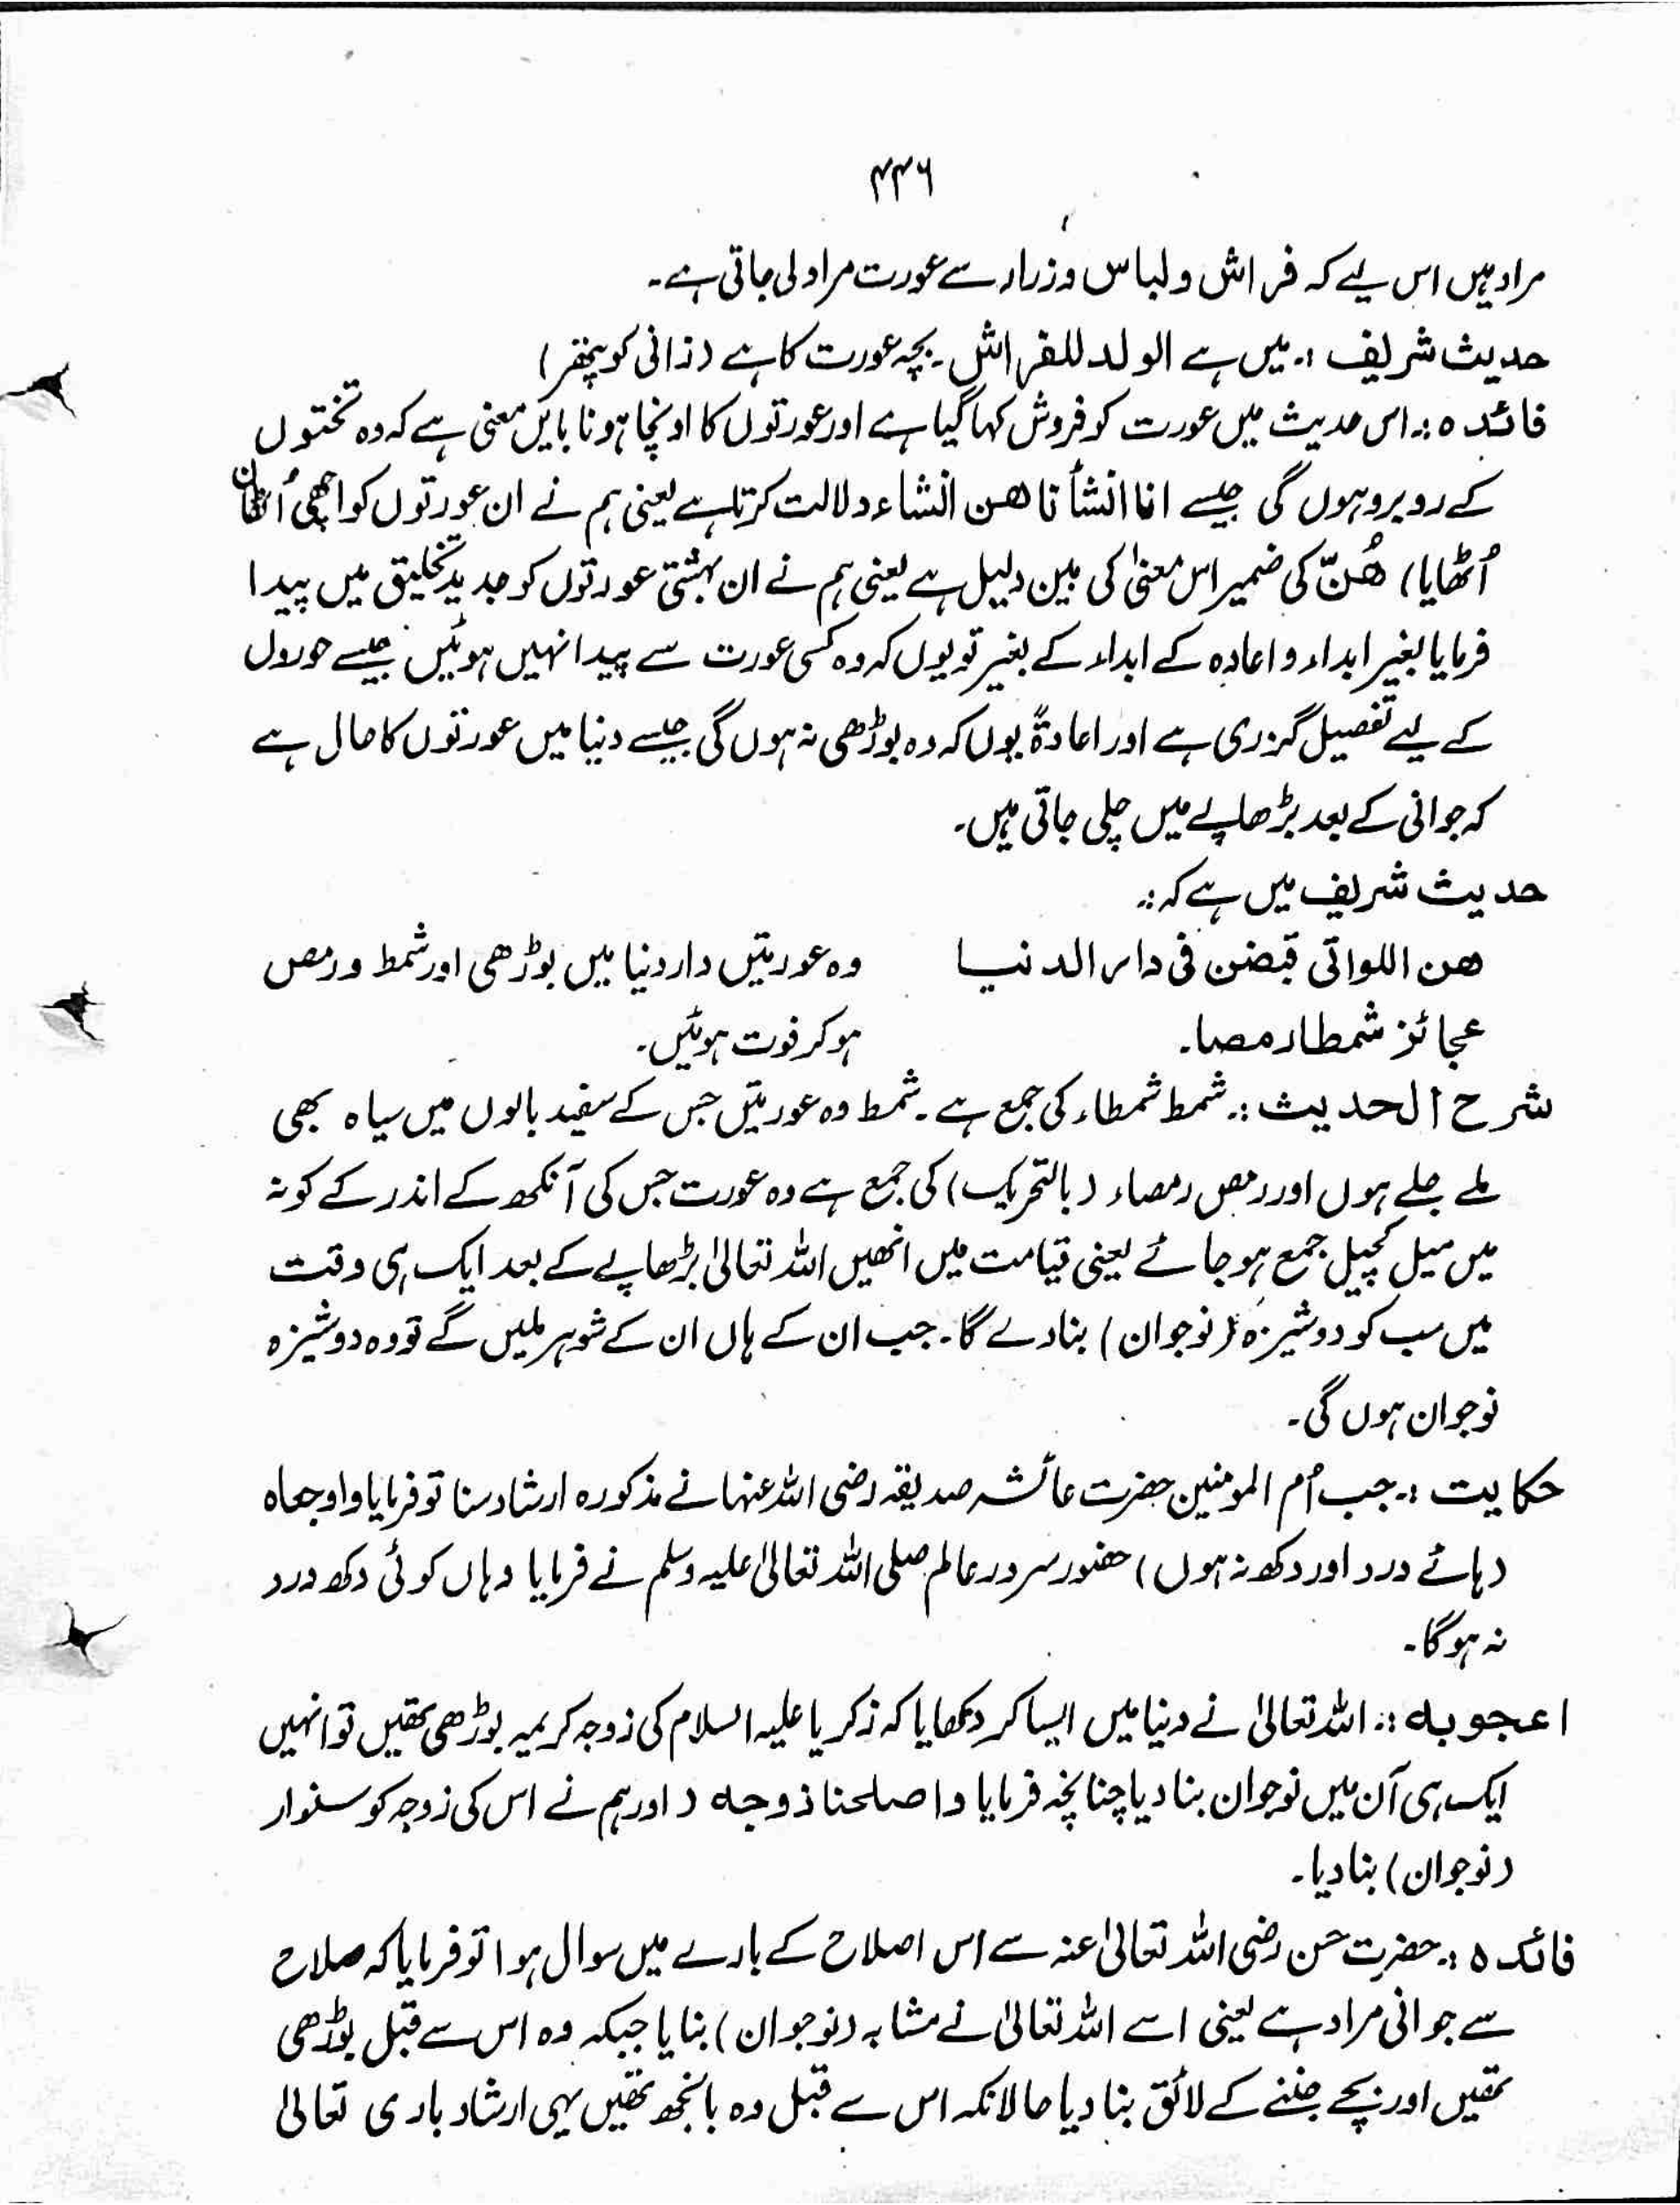 ۴۴۶
مراد ہیں اس لیے کہ فراش و لباس وزراء سے عورت مراد لی جاتی ہے۔
حدیث شریف :۔ میں ہے الولد للفراش۔ بچہ عورت کا ہے (زانی کو پتھر)
فائدہ :۔ اس حدیث میں عورت کو فروش کہا گیا ہے اور عورتوں کا اونچا ہونا بایں معنی ہے کہ وہ تختوں
کے روبرو ہوں گی جیسے انا انشأنا ھن انشاء دلالت کرتا ہے یعنی ہم نے ان عورتوں کو اچھی اُٹھان
اُٹھایا) ھُنّ کی ضمیر اس معنیٰ کی بین دلیل ہے یعنی ہم نے ان بہشتی عورتوں کو جدید تخلیق میں پیدا
فرمایا بغیر ابداء و اعادہ کے ابداء کے بغیر تو یوں کہ وہ کسی عورت سے پیدا نہیں ہوئیں جیسے حوروں
کے لیے تفصیل گزری ہے اور اعادۃً یوں کہ وہ بوڑھی نہ ہوں گی جیسے دنیا میں عورتوں کا حال ہے
کہ جوانی کے بعد بڑھاپے میں چلی جاتی ہیں۔
حدیث شریف میں ہے کہ :۔
ھن اللواتی قبضن فی دار الدنیا وہ عورتیں دار دنیا میں بوڑھی اور شمط ورمص
عجائز شمطا رمصا۔ ہو کر فوت ہوئیں۔
شرح الحدیث :۔ شمط شمطاء کی جمع ہے۔ شمط وہ عورتیں جس کے سفید بالوں میں سیاہ بھی
ملے جلے ہوں اور رمص رمصاء (بالتحریک) کی جمع ہے وہ عورت جس کی آنکھ کے اندر کے کونہ
میں میل کچیل جمع ہو جائے یعنی قیامت میں انھیں اللہ تعالیٰ بڑھاپے کے بعد ایک ہی وقت
میں سب کو دوشیزہ (نوجوان) بنا دے گا۔ جب ان کے ہاں ان کے شوہر ملیں گے تو وہ دوشیزہ
نوجوان ہوں گی۔
حکایت :۔ جب اُم المومنین حضرت عائشہ صدیقہ رضی اللہ عنہا نے مذکورہ ارشاد سنا تو فرمایا واوجعاہ
(ہائے درد اور دکھ نہ ہوں) حضور سرور عالم صلی اللہ تعالیٰ علیہ وسلم نے فرمایا وہاں کوئی دکھ درد
نہ ہوگا۔
اعجوبہ :۔ اللہ تعالیٰ نے دنیا میں ایسا کر دکھایا کہ زکریا علیہ السلام کی زوجہ کریمہ بوڑھی تھیں تو انہیں
ایک ہی آن میں نوجوان بنا دیا چنانچہ فرمایا واصلحنا زوجہ (اور ہم نے اس کی زوجہ کو سنوار
(نوجوان) بنا دیا۔
فائدہ :۔ حضرت حسن رضی اللہ تعالیٰ عنہ سے اس اصلاح کے بارے میں سوال ہوا تو فرمایا کہ صلاح
سے جوانی مراد ہے یعنی اسے اللہ تعالیٰ نے مشابہ (نوجوان) بنایا جبکہ وہ اس سے قبل بوڑھی
تھیں اور بچے جننے کے لائق بنا دیا حالانکہ اس سے قبل وہ بانجھ تھیں یہی ارشاد باری تعالیٰ